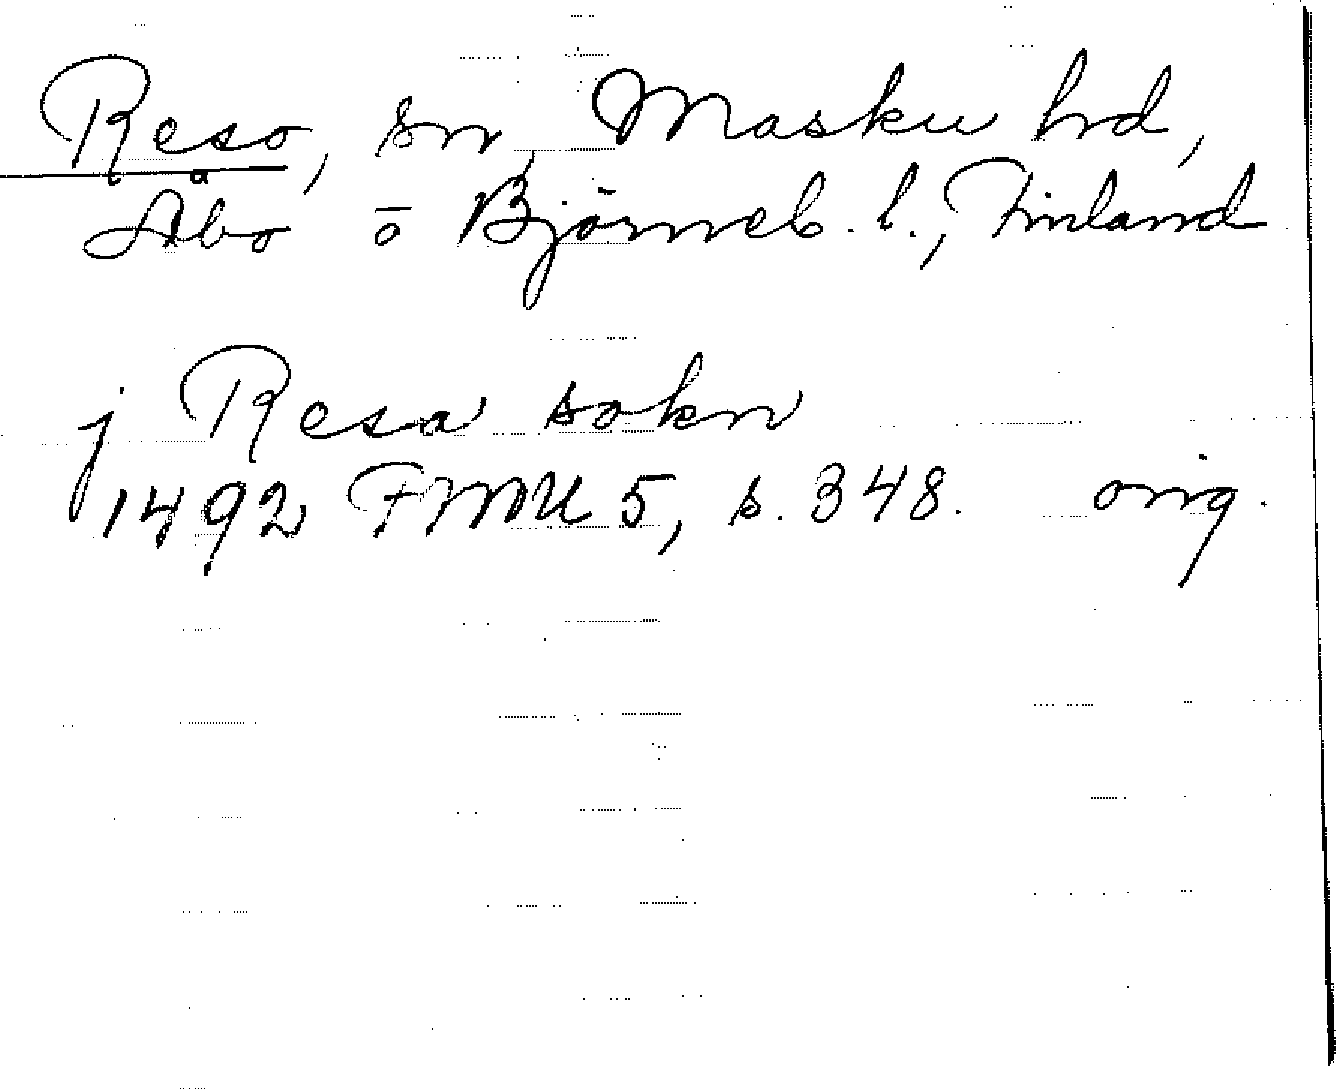 Reso, sn, Masku hrd,
Åbo o Björneb. l., Finland
j Resa sokn
1492 FMU 5, s. 348. orig.